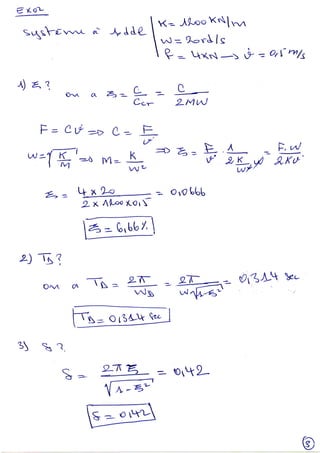 EXO2
Système à 1ddl | K = 1200 KN/m
ω = 20rd/s
F = 4KN → v̇ = 0,5 m/s
1) ξ ?
on a ξ = C/Ccr = C/2Mω
F = Cv̇ => C = F/v̇
ω = √(K/M) => M = K/ω² => ξ = F/v̇ · 1/(2 K/ω² ω) = F.ω/2Kv̇
ξ = 4 x 20 / 2 x 1200 x 0,5 = 0,0666
ξ = 6,66 %
2) TD ?
on a TD = 2π/ωD = 2π/ω√(1-ξ²) = 0,314 sec
TD = 0,314 sec
3) δ ?
δ = 2πξ/√(1-ξ²) = 0,42
δ = 0,42
3